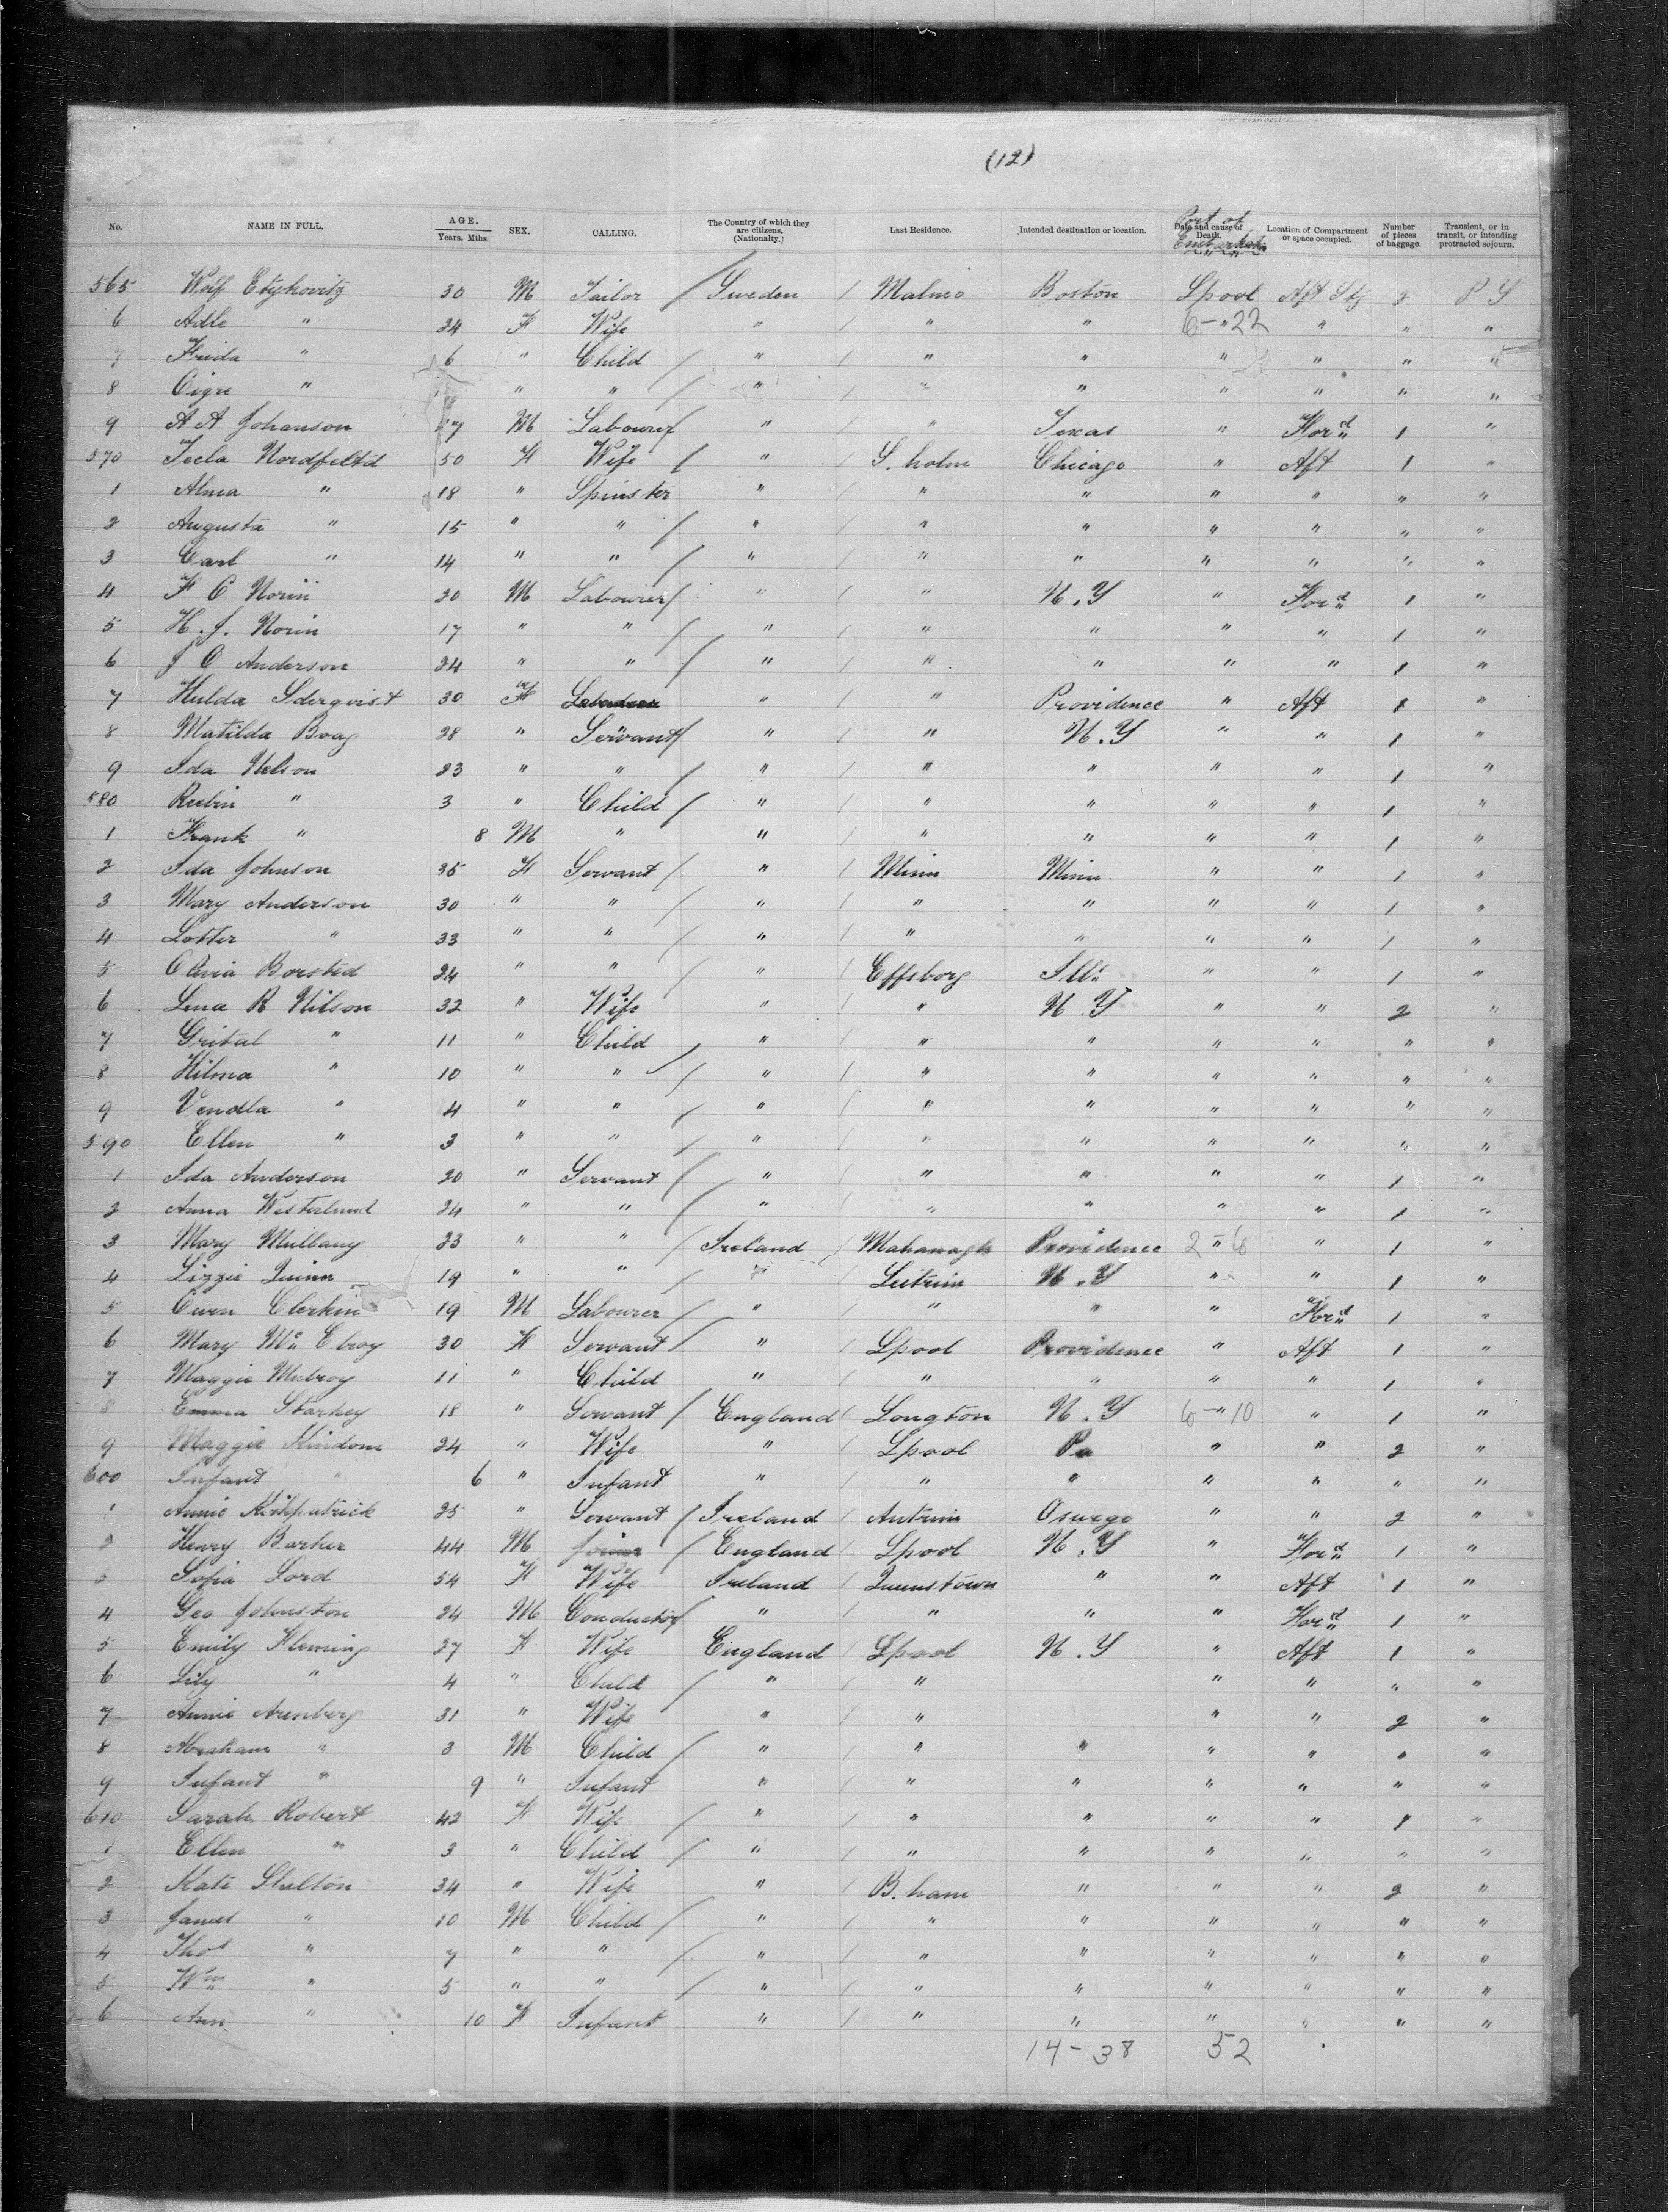 (12)
No. NAME IN FULL. AGE. Years. Mths. SEX. CALLING. The Country of which they are citizens. (Nationalty.) Last Residence. Intended destination or location. Date and cause of Death. Port of Embarkation Location of Compartment or space occupied. Number of pieces of baggage. Transient, or in transit, or intending protracted sojourn.
565 Wolf 30 M Tailor / Sweden / Malmo Boston Lpool Aft Stg 2 P S
6 Adle " 24 F Wife " / " " 6-"22 " " "
7 Frida " 6 " Child / " / " " " " " "
8 " " " / " / " " " " " "
9 A A Johanson 27 M Labourer / " / " Texas " Ford 1 "
570 Tecla Nordfeltd 50 F Wife / " / S. holm Chicago " Aft 1 "
1 Alma " 18 " Spinster " / " " " " " "
2 Augusta " 15 " " / " / " " " " " "
3 Carl " 14 " " / " / " " " " " "
4 F C Norin 20 M Labourer / " / " N.Y " Ford 1 "
5 H.J. Norin 17 " " / " / " " " " 1 "
6 J C Anderson 24 " " / " / " " " " 1 "
7 Hulda Sderqvist 30 F Labourer " / " Providence " Aft 1 "
8 Matilda Boag 28 " Servant / " / " N.Y " " 1 "
9 Ida Nelson 23 " " / " / " " " " 1 "
580 Rubin " 3 " Child / " / " " " " 1 "
1 Frank " 8 M " " / " " " " 1 "
2 Ida Johnson 35 F Servant / " / Minn Minn " " 1 "
3 Mary Anderson 30 " " / " / " " " " 1 "
4 Lotter " 33 " " / " / " " " " 1 "
5 Olivia Borsted 24 " " / " / Effsborg Ills " " 1 "
6 Lina R Nilson 32 " Wife " / " N.Y " " 2 "
7 Grital " 11 " Child / " / " " " " " "
8 Hilma " 10 " " / " / " " " " " "
9 Vendla " 4 " " / " / " " " " " "
590 Ellen " 3 " " / " / " " " " " "
1 Ida Anderson 20 " Servant / " / " " " " 1 "
2 Anna Westerlund 24 " " / " / " " " " 1 "
3 Mary Mullany 23 " " / Ireland / Mahanagh Providence 2 " 6 " 1 "
4 Lizzie Quinn 19 " " / " Leitrim N.Y " " 1 "
5 Owen Clerkin 19 M Labourer " / " " " Ford 1 "
6 Mary Mc Elroy 30 F Servant / " / Lpool Providence " Aft 1 "
7 Maggie Mcelroy 11 " Child " / " " " " 1 "
8 Emma Starkey 18 " Servant / England / Longton N.Y 6-"10 " 1 "
9 Maggie 24 " Wife " / Lpool Pa " " 2 "
600 Infant " 6 " Infant " / " " " " " "
1 Annie Kirkpatrick 25 " Servant / Ireland / Antrim Oswego " " 2 "
2 Henry Barker 44 M Joiner / England / Lpool N.Y " Ford 1 "
3 Sofia Lord 54 F Wife Ireland / Queenstown " " Aft 1 "
4 Geo Johnston 24 M Conductor / " / " " " Ford 1 "
5 Emily Fleming 27 F Wife England / Lpool N.Y " Aft 1 "
6 Lily " 4 " Child / " / " " " " "
7 Annie Arenberg 31 " Wife " / " " " 2 "
8 Abraham " 3 M Child / " / " " " " " "
9 Infant " 9 " Infant " / " " " " " "
610 Sarah Robert 42 F Wife / " / " " " " 1 "
1 Ellen " 3 " Child / " / " " " " " "
2 Kate Shelton 34 " Wife " / B.ham " " " 2 "
3 James " 10 M Child / " / " " " " " "
4 Thos " 7 " " / " / " " " " " "
5 Wm " 5 " " / " / " " " " " "
6 Ann " 10 F Infant " / " " " " " "
14-38 52